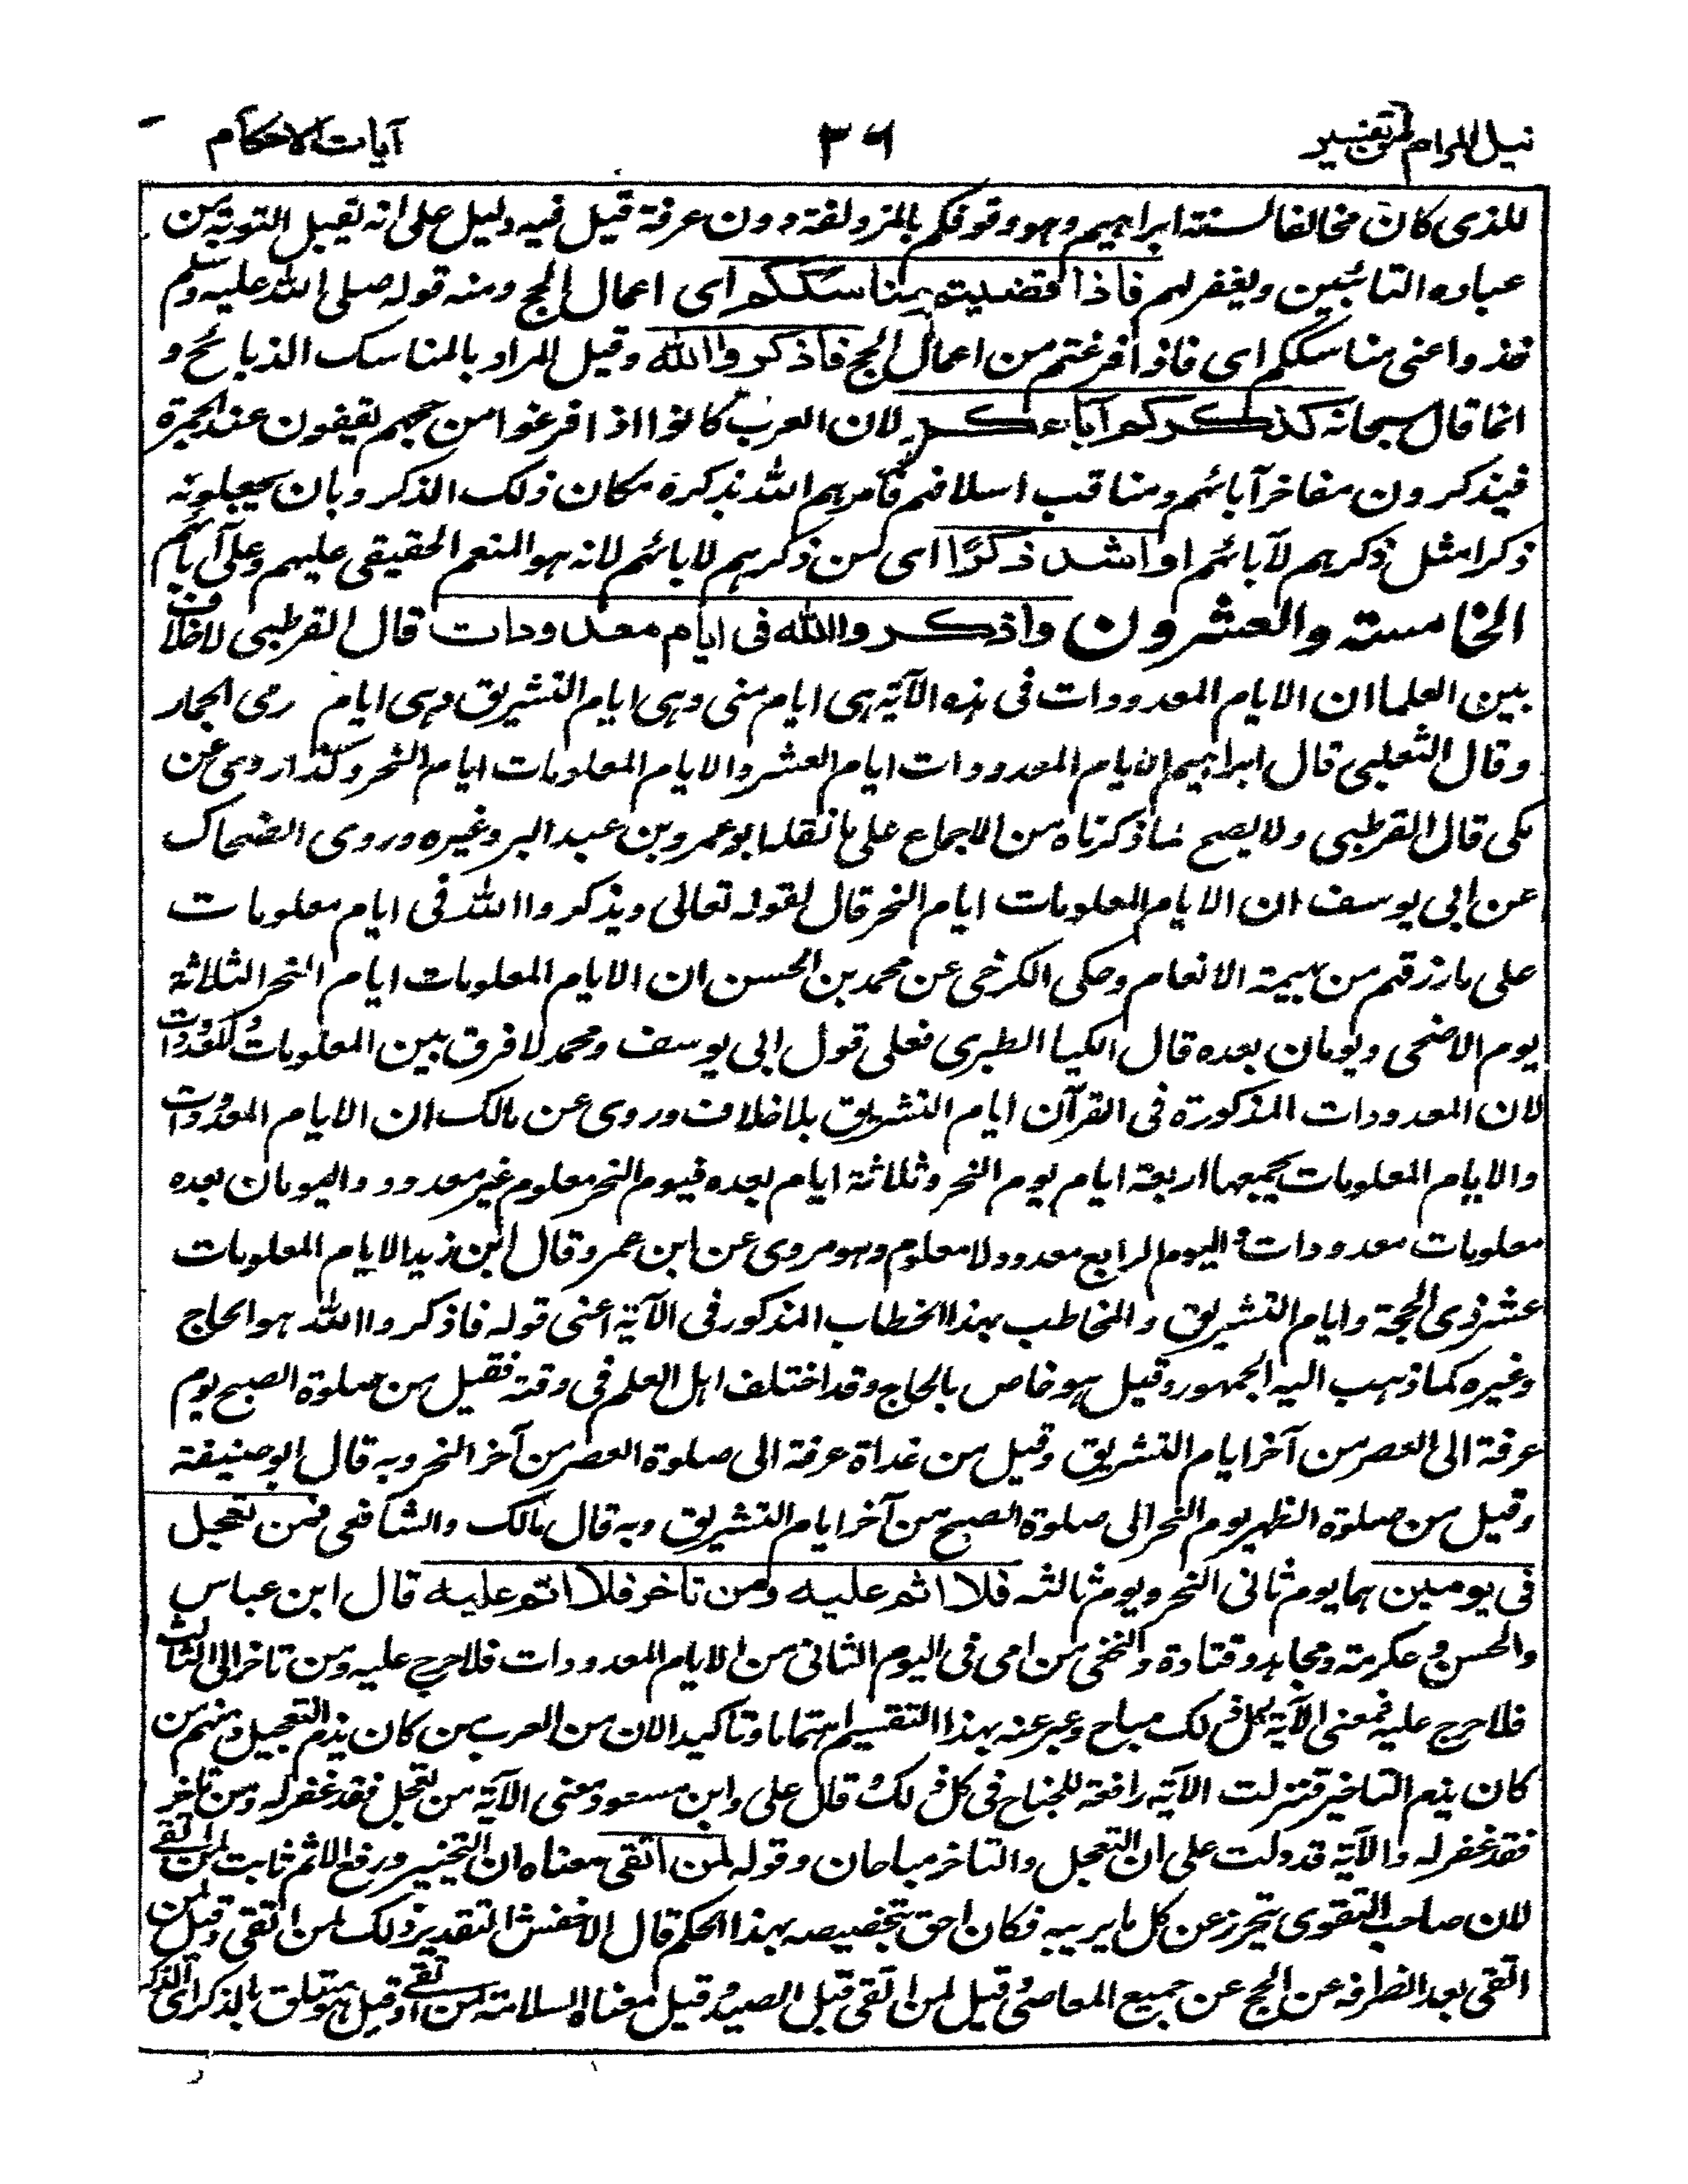 نيل المرام من تفسير ٣٦ آيات الاحكام
للذى كان مخالفا لسنة ابراہيم وہو وقوفكم بالمزدلفة دون عرفة قيل فيه دليل على انه يقبل التوبة من
عباده التائبين ويغفر لہم فاذا قضيتم مناسككم اى اعمال الحج ومنه قوله صلى الله عليه وسلم
خذوا عنى مناسككم اى فاذا فرغتم من اعمال الحج فاذكروا الله وقيل المراد بالمناسك الذبائح و
انما قال سبحانه كذكركم آباءكم لان العرب كانوا اذا فرغوا من حجہم يقفون عند الجمرة
فيذكرون مفاخر آبائہم ومناقب اسلافہم فأمرہم الله بذكره مكان ذلك الذكر وبان يجعلونه
ذكرا مثل ذكرہم لآبائہم او اشد ذكرًا اى من ذكرہم لابائہم لانه ہو المنعم الحقيقى عليہم وعلى آبائہم
الخامسة والعشرون واذكروا الله فى ايام معدودات قال القرطبى لا خلاف
بين العلماء ان الايام المعدودات فى ہذه الآية ہى ايام منى وہى ايام التشريق وہى ايام رمى الجمار
وقال الثعلبى قال ابراہيم الايام المعدودات ايام العشر والايام المعلومات ايام النحر وكذا روى عن
مكى قال القرطبى ولا يصح لما ذكرناه من الاجماع على ما نقله ابو عمرو بن عبد البر وغيره وروى الضحاك
عن ابى يوسف ان الايام المعلومات ايام النحر قال لقوله تعالى ويذكروا الله فى ايام معلومات
على ما رزقہم من بہيمة الانعام وحكى الكرخى عن محمد بن الحسن ان الايام المعلومات ايام النحر الثلاثة
يوم الاضحى ويومان بعده قال الكيا الطبرى فعلى قول ابى يوسف ومحمد لا فرق بين المعلومات والمعدودات
لان المعدودات المذكورة فى القرآن ايام التشريق بلا خلاف وروى عن مالك ان الايام المعدودات
والايام المعلومات يجمعہا اربعة ايام يوم النحر وثلاثة ايام بعده فيوم النحر معلوم غير معدود واليومان بعده
معلومات معدودات واليوم الرابع معدود لا معلوم وہو مروى عن ابن عمر وقال ابن زيد الايام المعلومات
عشر ذى الحجة وايام التشريق والمخاطب بہذا الخطاب المذكور فى الآية اعنى قوله فاذكروا الله ہو الحاج
وغيره كما ذہب اليه الجمہور وقيل ہو خاص بالحاج وقد اختلف اہل العلم فى وقته فقيل من صلوة الصبح يوم
عرفة الى العصر من آخر ايام التشريق وقيل من غداة عرفة الى صلوة العصر من آخر النحر وبه قال ابو حنيفة
وقيل من صلوة الظہر يوم النحر الى صلوة الصبح من آخر ايام التشريق وبه قال مالك والشافعى فمن تعجل
فى يومين ہما يوم ثانى النحر ويوم ثالثه فلا اثم عليه ومن تاخر فلا اثم عليه قال ابن عباس
والحسن وعكرمة ومجاہد وقتادة والنخعى من رمى فى اليوم الثانى من الايام المعدودات فلا حرج عليه ومن تاخر الى الثالث
فلا حرج عليه فمعنى الآية كل ذلك مباح وعبر عنه بہذا التقسيم اہتماما وتاكيدا لان من العرب من كان يذم التعجيل ومنہم من
كان يذم التاخير فنزلت الآية رافعة للجناح فى كل ذلك وقال على وابن مسعود معنى الآية من تعجل فقد غفر له ومن تاخر
فقد غفر له والآية قد دلت على ان التعجل والتاخر مباحان وقوله لمن اتقى معناه ان التخيير ورفع الاثم ثابت لمن اتقى
لان صاحب التقوى يتحرز عن كل ما يريبه فكان احق بتخصيصه بہذا الحكم قال الاخفش التقدير ذلك لمن اتقى وقيل لمن
اتقى بعد انصرافه عن الحج عن جميع المعاصى وقيل لمن اتقى قبل الصيد وقيل معناه السلامة لمن اتقى وقيل ہو متعلق بالذكر اى الذكر